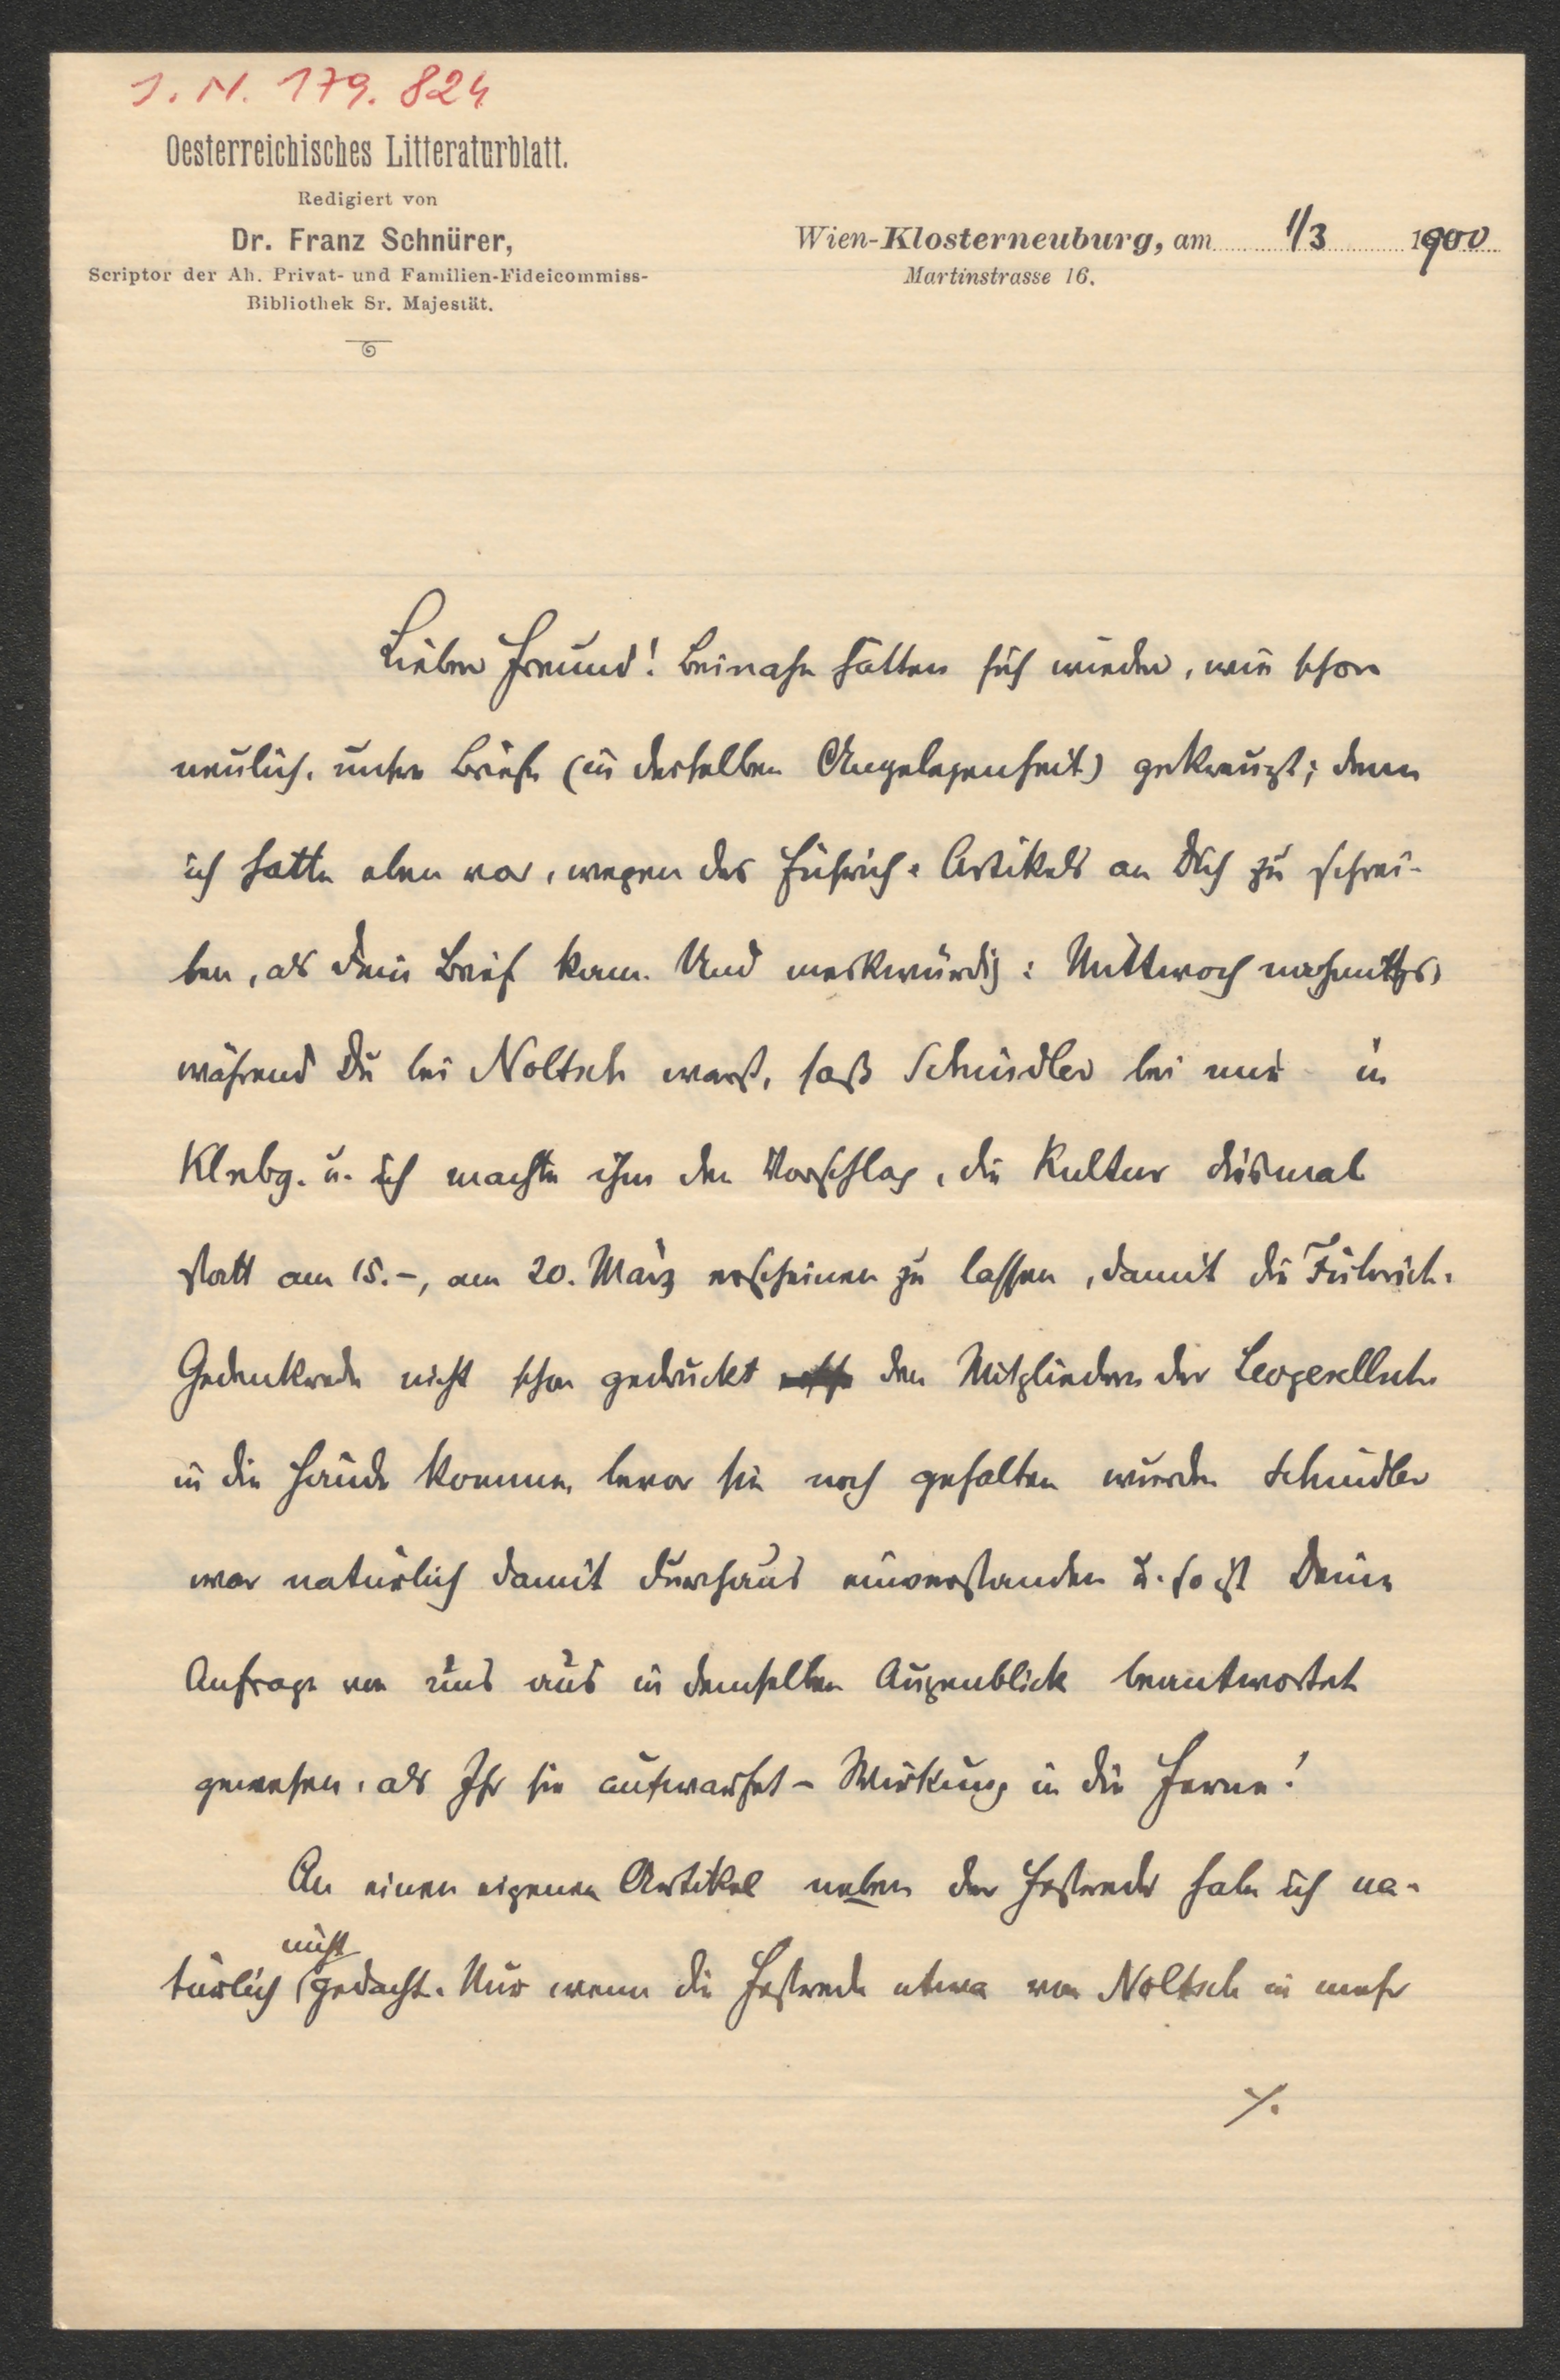 J. N. 179.824
Oesterreichisches Litteraturblatt.
Redigiert von
Dr. Franz Schnürer,
Scriptor der Ah. Privat- und Familien-Fideicommiss-
Bibliothek Sr. Majestät.
Wien-Klosterneuburg, am 1/3 1900
Martinstrasse 16.
Lieber Freund! Beinahe hätten sich wieder, wie schon
neulich, unsere Briefe (in derselben Angelegenheit) gekreuzt; denn
ich hatte eben vor, wegen des Führich-Artikels an Dich zu schrei-
ben, als Dein Brief kam. Und merkwürdig: Mittwoch nachmittgs,
während Du bei Noltsch warst, saß Schindler bei mir in
Klnbg. u. ich machte ihm den Vorschlag, die Kultur diesmal
statt am 15.-, am 20. März erscheinen zu lassen, damit die Führich-
Gedenkrede nicht schon gedruckt den Mitgliedern der Leogesellsch.
in die Hände komme, bevor sie noch gehalten wurde. Schindler
war natürlich damit durchaus einverstanden u. so ist Deine
Anfrage von uns aus in demselben Augenblick beantwortet
gewesen, als Ihr sie aufwarfet – Wirkung in die Ferne!
An einen eigenen Artikel neben der Festrede habe ich na-
türlich nicht gedacht. Nur wenn die Festrede etwa von Noltsch in mehr
./.